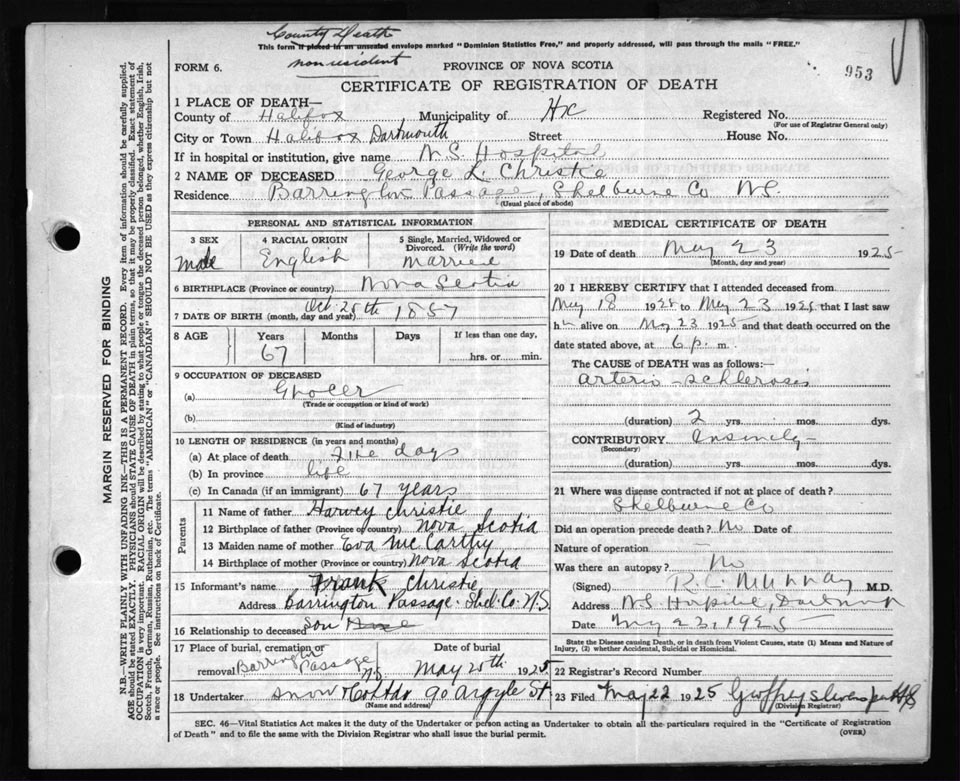 County Death
This form if placed in an unsealed envelope marked "Dominion Statistics Free," and properly addressed, will pass through the mails "FREE."
non resident
FORM 6.
PROVINCE OF NOVA SCOTIA
953
CERTIFICATE OF REGISTRATION OF DEATH
1 PLACE OF DEATH—
County of Halifax Municipality of Hx Registered No.
(For use of Registrar General only)
City or Town Halifax Dartmouth Street House No.
If in hospital or institution, give name N.S. Hospital
2 NAME OF DECEASED George L. Christie
Residence Barrington Passage, Shelburne Co N.S.
(Usual place of abode)
PERSONAL AND STATISTICAL INFORMATION
3 SEX
Male
4 RACIAL ORIGIN
English
5 Single, Married, Widowed or Divorced. (Write the word)
Married
6 BIRTHPLACE (Province or country) Nova Scotia
7 DATE OF BIRTH (month, day and year) Oct. 25th 1857
8 AGE Years Months Days If less than one day,
67 hrs. or min.
9 OCCUPATION OF DECEASED
(a) Grocer
(Trade or occupation or kind of work)
(b)
(Kind of industry)
10 LENGTH OF RESIDENCE (in years and months)
(a) At place of death five days
(b) In province life
(c) In Canada (if an immigrant) 67 years
Parents
11 Name of father Harvey Christie
12 Birthplace of father (Province or country) Nova Scotia
13 Maiden name of mother Eva McCarthy
14 Birthplace of mother (Province or country) Nova Scotia
15 Informant's name Frank Christie
Address Barrington Passage. Shel. Co. N.S.
16 Relationship to deceased Son
17 Place of burial, cremation or removal Barrington Passage N.S.
Date of burial
May 20th 1925
18 Undertaker Snow & Co Ltd 90 Argyle St.
(Name and address)
MEDICAL CERTIFICATE OF DEATH
19 Date of death May 23 1925
(Month, day and year)
20 I HEREBY CERTIFY that I attended deceased from
May 18 1925 to May 23 1925 that I last saw
him alive on May 23 1925 and that death occurred on the
date stated above, at 6 p. m.
The CAUSE of DEATH was as follows:—
Arterio-schlerosis
(duration) 2 yrs. mos. ds.
CONTRIBUTORY Insanity
(Secondary)
(duration) yrs. mos. dys.
21 Where was disease contracted if not at place of death?
Shelburne Co
Did an operation precede death? No Date of
Nature of operation —
Was there an autopsy? No
(Signed) R.C. Murray M.D.
Address N.S. Hospital, Dartmouth
Date May 23, 1925
State the Disease causing Death, or in death from Violent Causes, state (1) Means and Nature of Injury, (2) whether Accidental, Suicidal or Homicidal.
22 Registrar's Record Number
23 Filed May 22 1925 Geoffrey Stevens
(Division Registrar)
SEC. 46—Vital Statistics Act makes it the duty of the Undertaker or person acting as Undertaker to obtain all the particulars required in the "Certificate of Registration
of Death" and to file the same with the Division Registrar who shall issue the burial permit.
(OVER)
MARGIN RESERVED FOR BINDING
N.B.—WRITE PLAINLY WITH UNFADING INK—THIS IS A PERMANENT RECORD. Every item of information should be carefully supplied.
AGE should be stated EXACTLY. PHYSICIANS should STATE CAUSE OF DEATH in plain terms, so that it may be properly classified. Exact statement of
OCCUPATION is very important. RACIAL ORIGIN will be described by stating to what people or tongue the deceased person belonged, whether English, Irish,
Scotch, French, German, Russian, Ruthenian, etc. The terms "AMERICAN" or "CANADIAN" SHOULD NOT BE USED as they express citizenship but not
a race or people. See instructions on back of Certificate.